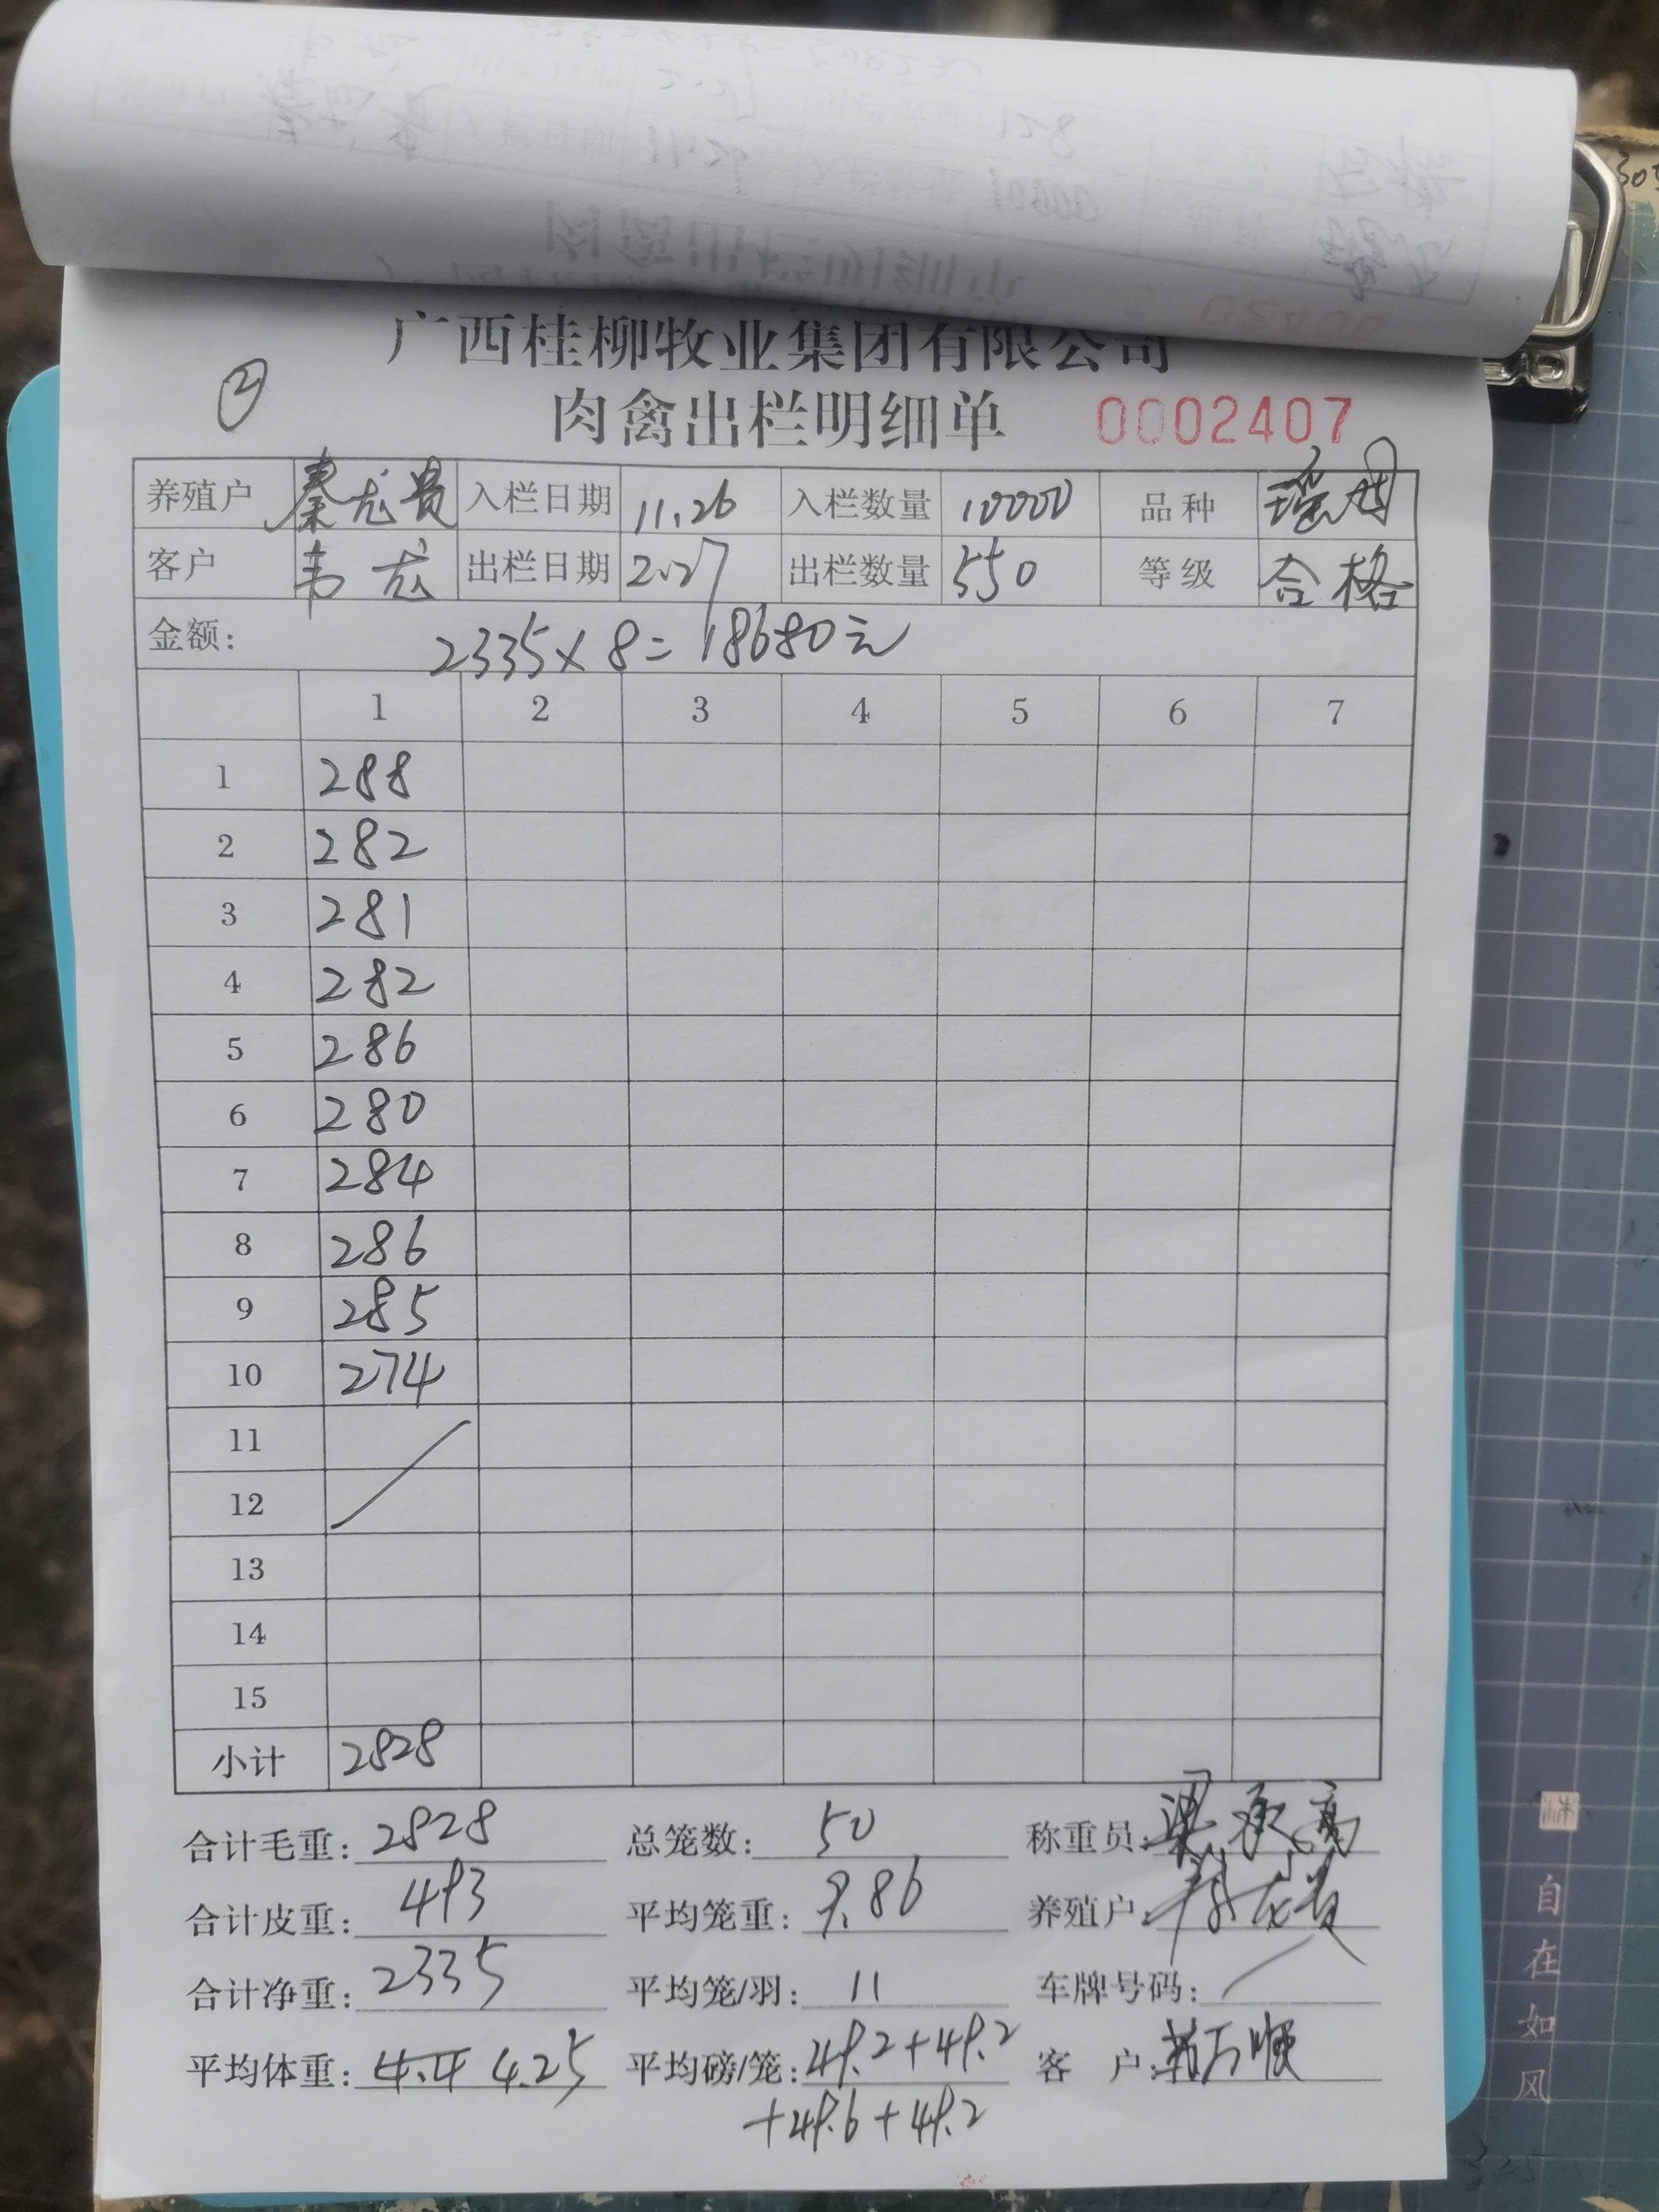 广西桂柳牧业集团有限公司
② 肉禽出栏明细单 0002407
养殖户 秦龙贵 入栏日期 11.26 入栏数量 10000 品种 瑶鸡
客户 韦龙 出栏日期 2.27 出栏数量 550 等级 合格
金额: 2335×8=18680元
1 2 3 4 5 6 7
1 288
2 282
3 281
4 282
5 286
6 280
7 284
8 286
9 285
10 274
11
12
13
14
15
小计 2828
合计毛重: 2828 总笼数: 50 称重员: 梁承高
合计皮重: 493 平均笼重: 9.86 养殖户: 秦龙贵
合计净重: 2335 平均笼/羽: 11 车牌号码: /
平均体重: 4.4 4.25 平均磅/笼: 49.2+49.2 客 户:
+49.6+49.2
自在如风